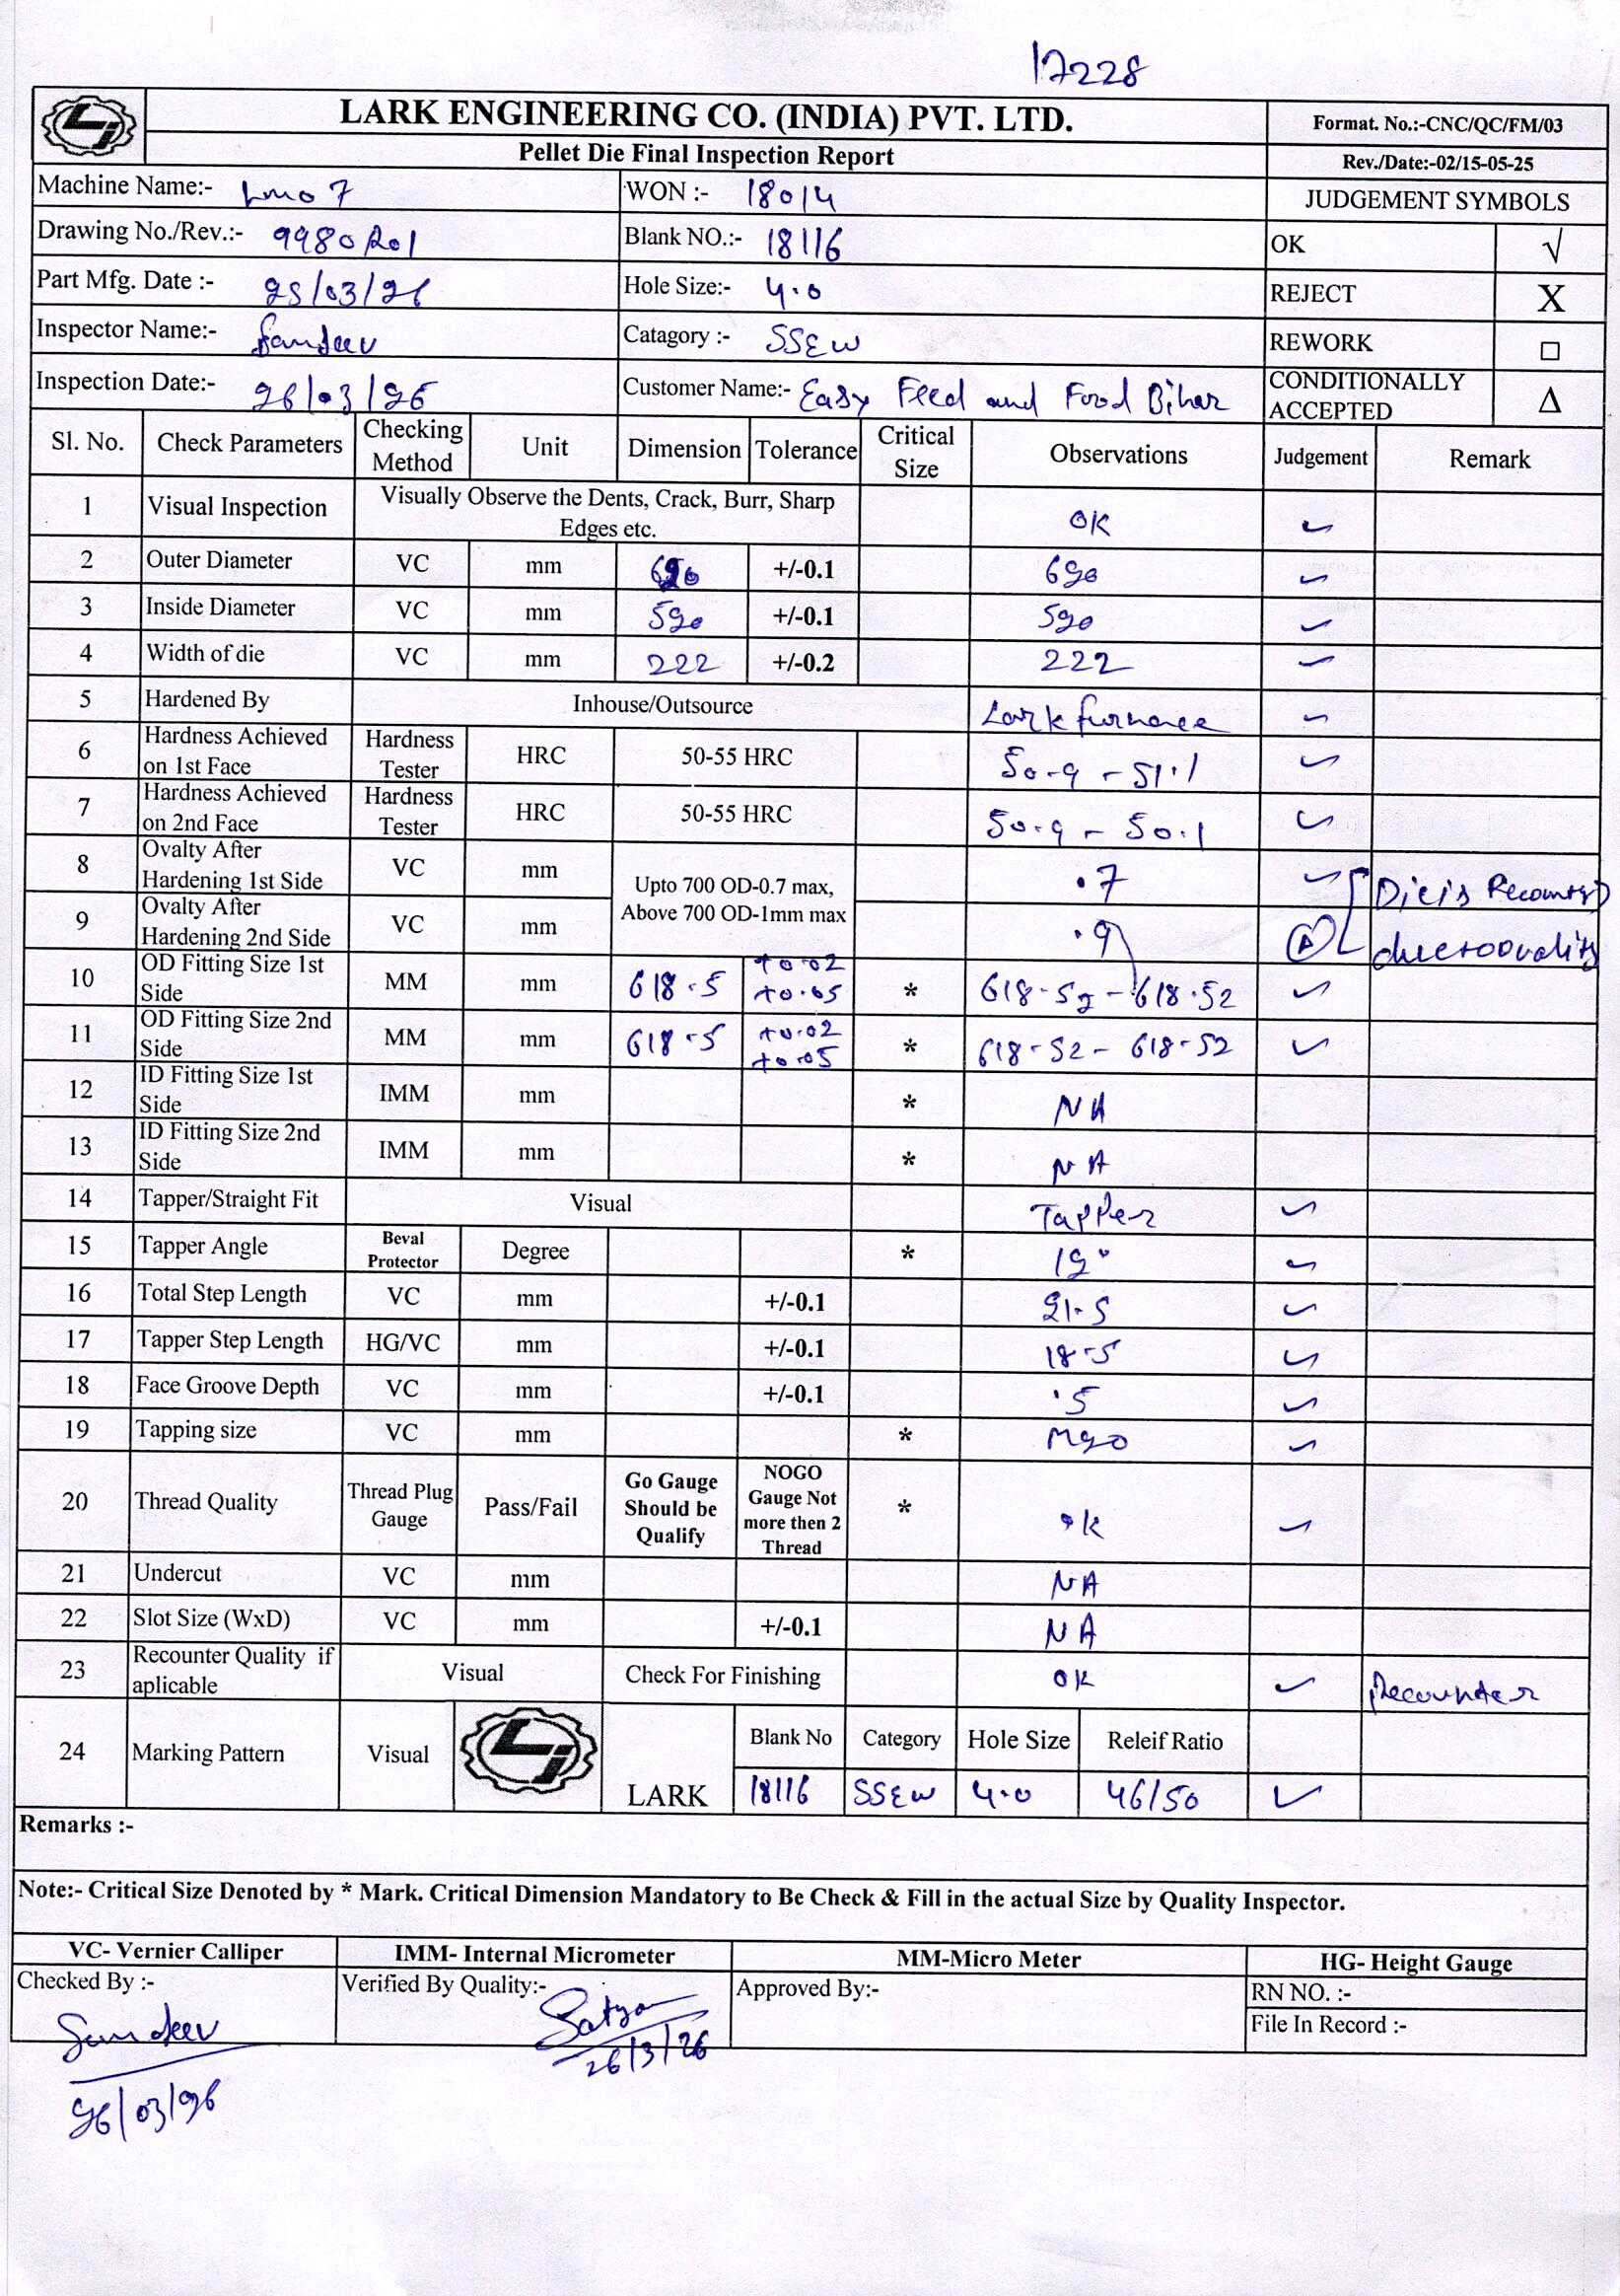 17228
LARK ENGINEERING CO. (INDIA) PVT. LTD.
Format. No.:-CNC/QC/FM/03
Pellet Die Final Inspection Report
Rev./Date:-02/15-05-25
Machine Name:- Lmo 7 WON :- 18014 JUDGEMENT SYMBOLS
Drawing No./Rev.:- 9980R01 Blank NO.:- 18116 OK √
Part Mfg. Date :- 25/03/26 Hole Size:- 4.0 REJECT X
Inspector Name:- Sandeev Catagory :- SSEW REWORK □
Inspection Date:- 26/03/26 Customer Name:- Easy Feed and Food Bihar CONDITIONALLY ACCEPTED Δ
Sl. No. Check Parameters Checking Method Unit Dimension Tolerance Critical Size Observations Judgement Remark
1 Visual Inspection Visually Observe the Dents, Crack, Burr, Sharp Edges etc. OK ✓
2 Outer Diameter VC mm 690 +/-0.1 690 ✓
3 Inside Diameter VC mm 590 +/-0.1 590 ✓
4 Width of die VC mm 222 +/-0.2 222 ✓
5 Hardened By Inhouse/Outsource Lark furnace ✓
6 Hardness Achieved on 1st Face Hardness Tester HRC 50-55 HRC 50.9 - 51.1 ✓
7 Hardness Achieved on 2nd Face Hardness Tester HRC 50-55 HRC 50.9 - 50.1 ✓
8 Ovalty After Hardening 1st Side VC mm Upto 700 OD-0.7 max, Above 700 OD-1mm max .7 ✓ Die is Recounted
9 Ovalty After Hardening 2nd Side VC mm .9 Δ due to ovality
10 OD Fitting Size 1st Side MM mm 618.5 +0.02 +0.05 * 618.52 - 618.52 ✓
11 OD Fitting Size 2nd Side MM mm 618.5 +0.02 +0.05 * 618.52 - 618.52 ✓
12 ID Fitting Size 1st Side IMM mm * NA
13 ID Fitting Size 2nd Side IMM mm * NA
14 Tapper/Straight Fit Visual Tapper ✓
15 Tapper Angle Beval Protector Degree * 15° ✓
16 Total Step Length VC mm +/-0.1 21.5 ✓
17 Tapper Step Length HG/VC mm +/-0.1 18.5 ✓
18 Face Groove Depth VC mm +/-0.1 .5 ✓
19 Tapping size VC mm * M20 ✓
20 Thread Quality Thread Plug Gauge Pass/Fail Go Gauge Should be Qualify NOGO Gauge Not more then 2 Thread * ok ✓
21 Undercut VC mm NA
22 Slot Size (WxD) VC mm +/-0.1 NA
23 Recounter Quality if aplicable Visual Check For Finishing OK ✓ Recounter
24 Marking Pattern Visual LARK Blank No Category Hole Size Releif Ratio
18116 SSEW 4.0 46/50 ✓
Remarks :-
Note:- Critical Size Denoted by * Mark. Critical Dimension Mandatory to Be Check & Fill in the actual Size by Quality Inspector.
VC- Vernier Calliper IMM- Internal Micrometer MM-Micro Meter HG- Height Gauge
Checked By :- Verified By Quality:- Approved By:- RN NO. :-
File In Record :-
Sandeev Satya
26/3/26
26/03/26